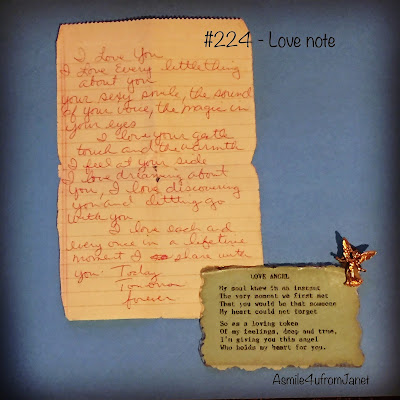 #224 - Love note
I Love You
I Love Every little thing
about you
your sexy smile, the sound
of your voice, the magic in
your eyes
I love your gentle
touch and the warmth
I feel at your side
I love dreaming about
you, I love discovering
you and letting go
with you.
I love each and
every once in a lifetime
moment I share with
you: Today
Tomorrow
forever
LOVE ANGEL
My soul knew in an instant
The very moment we first met
That you would be that someone
My heart could not forget
So as a loving token
Of my feelings, deep and true,
I'm giving you this angel
Who holds my heart for you.
Asmile4ufromJanet